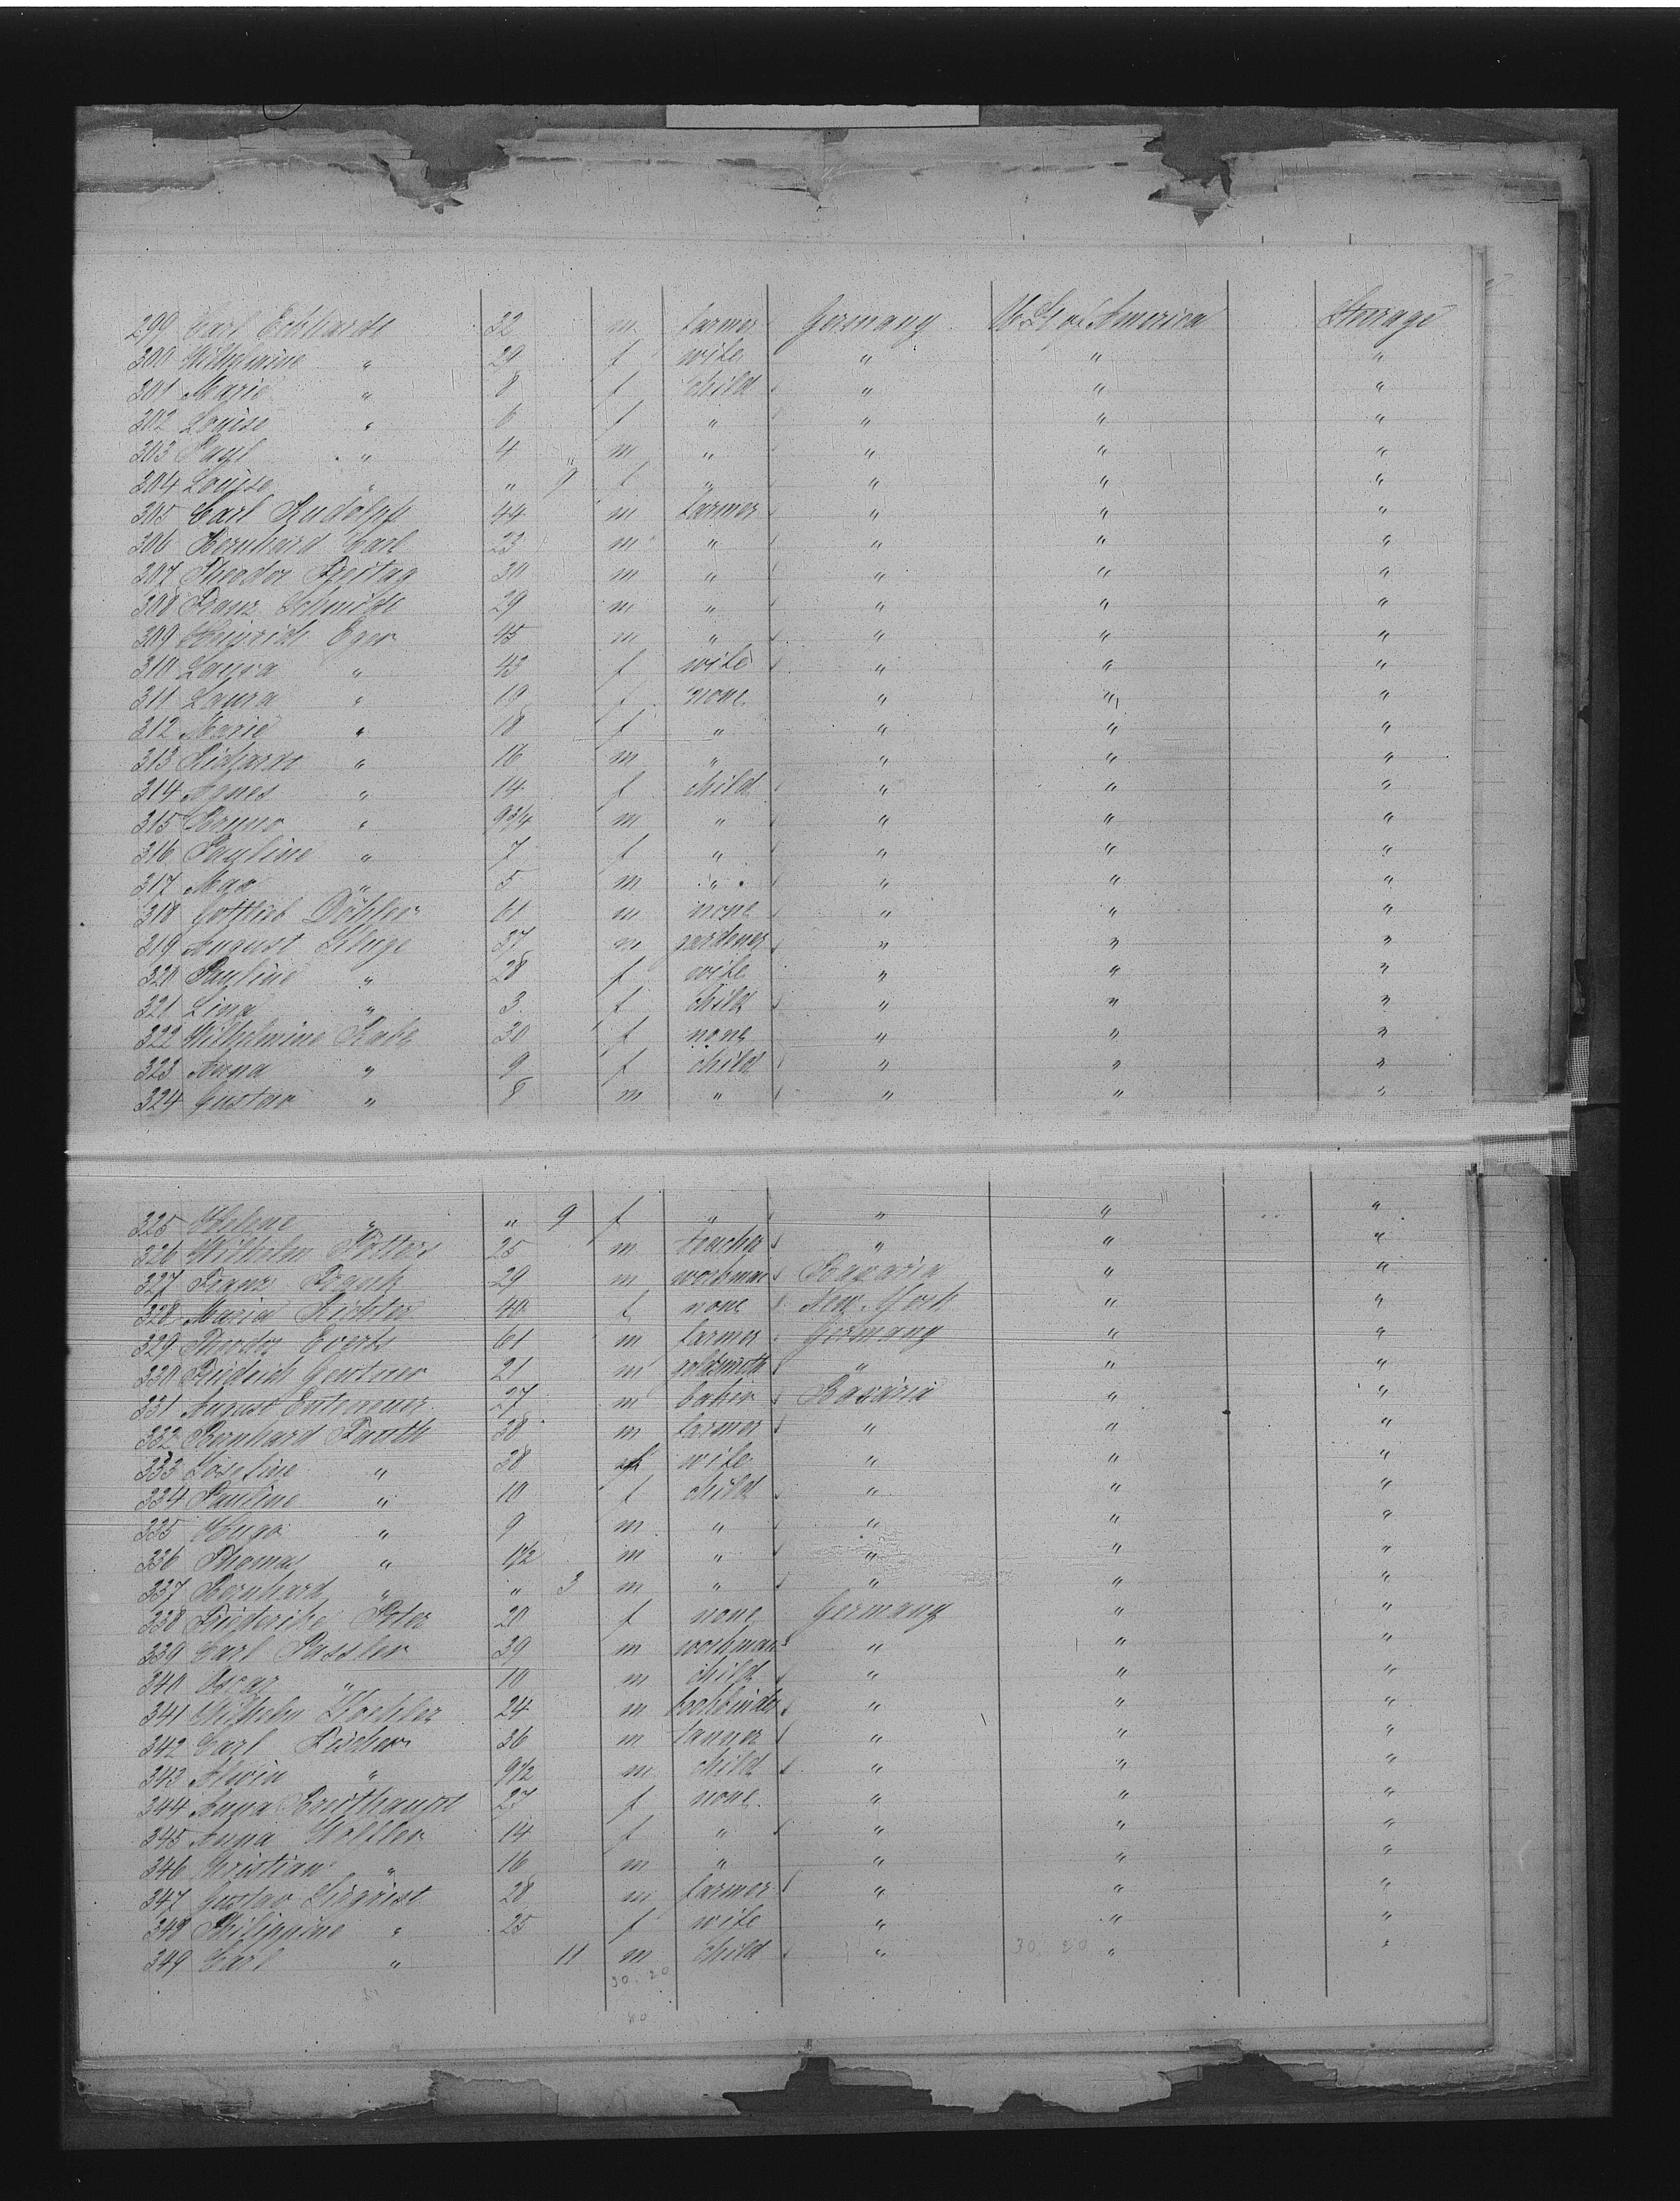 299 Carl Eckhardt 32 m farmer Germany U. St. of America Steerage
300 Wilhelmine " 29 f wife " " "
301 Marie " 8 f child " " "
302 Louise " 6 f " " " "
303 Paul " 4 m " " " "
304 Louise " " 9 f " " " "
305 Carl Rudolph 44 m farmer " " "
306 Bernhard Carl 23 m " " " "
307 Theodor Freitag 30 m " " " "
308 Franz Schmidt 29 m " " " "
309 Heinrich Eger 45 m " " " "
310 Laura " 43 f wife " " "
311 Laura " 19 f none " " "
312 Marie " 18 f " " " "
313 Richard " 16 m " " " "
314 Agnes " 14 f child " " "
315 Bruno " 9 3/4 m " " " "
316 Pauline " 7 f " " " "
317 Max " 5 m " " " "
318 Gottlieb Döhler 61 m none " " "
319 August Kluge 37 m gardener " " "
320 Pauline " 28 f wife " " "
321 Lina " 3 f child " " "
322 Wilhelmine Rabe 30 f none " " "
323 Anna " 9 f child " " "
324 Gustav " 8 m " " " "
325 Helene " " 9 f " " " "
326 Wilhelm 25 m teacher " " "
327 Franz Frank 29 m workman Bavaria " "
328 Maria Richter 40 f none New York " "
329 Theodor Everts 61 m farmer Germany " "
330 Friedrich Gentner 21 m goldsmith " " "
331 August 27 m baker Bavaria " "
332 Bernhard Fauth 38 m farmer " " "
333 Josefine " 38 f wife " " "
334 Pauline " 10 f child " " "
335 Hugo " 9 m " " " "
336 Thomas " 1 1/2 m " " " "
337 Bernhard " " 3 m " " " "
338 Friederike Peter 20 f none Germany " "
339 Carl Passler 39 m workman " " "
340 Oscar " 10 m child " " "
341 Wilhelm Koehler 24 m bookbinder " " "
342 Carl Fischer 36 m tanner " " "
343 Alwin " 9 1/2 m child " " "
344 Anna Breithaupt 27 f none " " "
345 Anna Wolfler 14 f " " " "
346 Christian " 16 m " " " "
347 Gustav 28 m farmer " " "
348 Philippine " 25 f wife " " "
349 Carl " 11 m child " 30. 20 " "
30. 20